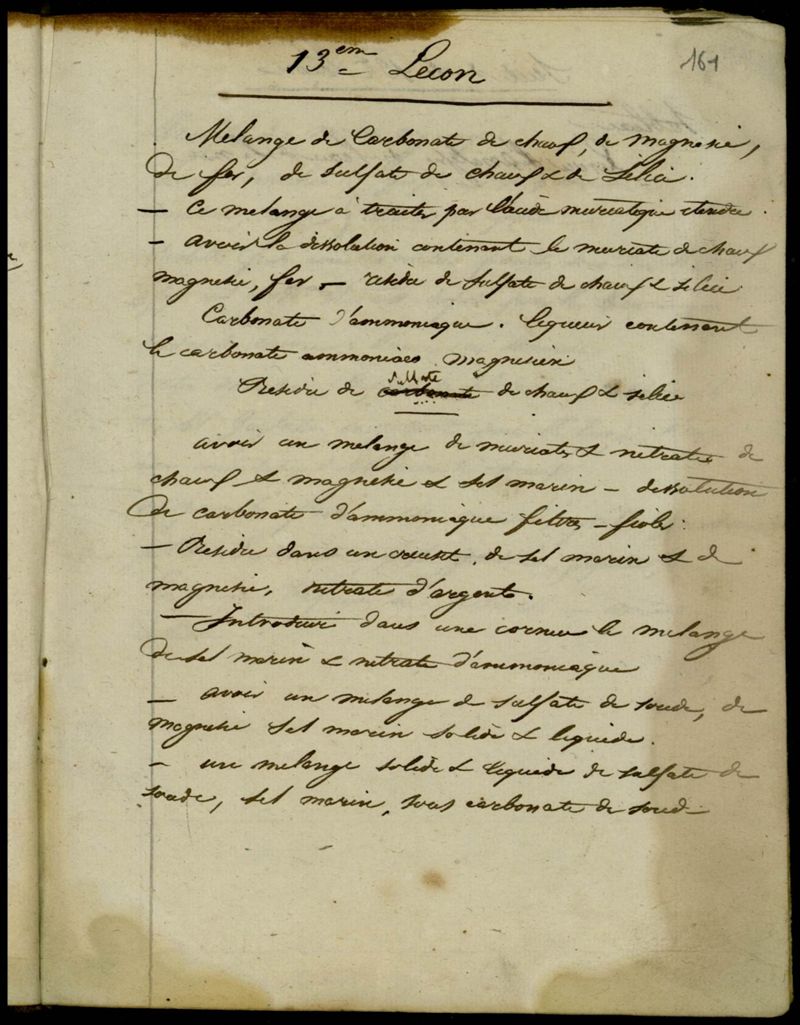 161
13em Lecon
Melange de Carbonate de chaux, de magnesie,
de fer, de sulfate de chaux & de Silice.
— Ce melange à traiter par l'acide muriatique etendu.
— avoir la dissolution contenant le muriate de chaux
magnesie, fer — residu de sulfate de chaux & silice
Carbonate d'ammoniaque. liqueur contenant
le carbonate ammoniaco magnesien
sulfate
Residu de carbonate de chaux & silice
avoir un melange de muriates & nitrates de
chaux & magnesie & sel marin — dissolution
de carbonate d'ammoniaque filtres — fioles.
— Residu dans un creuset, de sel marin & de
magnesie, nitrate d'argent.
— Introduire dans une cornue le melange
de sel marin & nitrate d'ammoniaque
— avoir un melange de sulfate de soude, de
magnesie sel marin solide & liquide.
— un melange solide & liquide de sulfate de
soude, sel marin, sous carbonate de soude